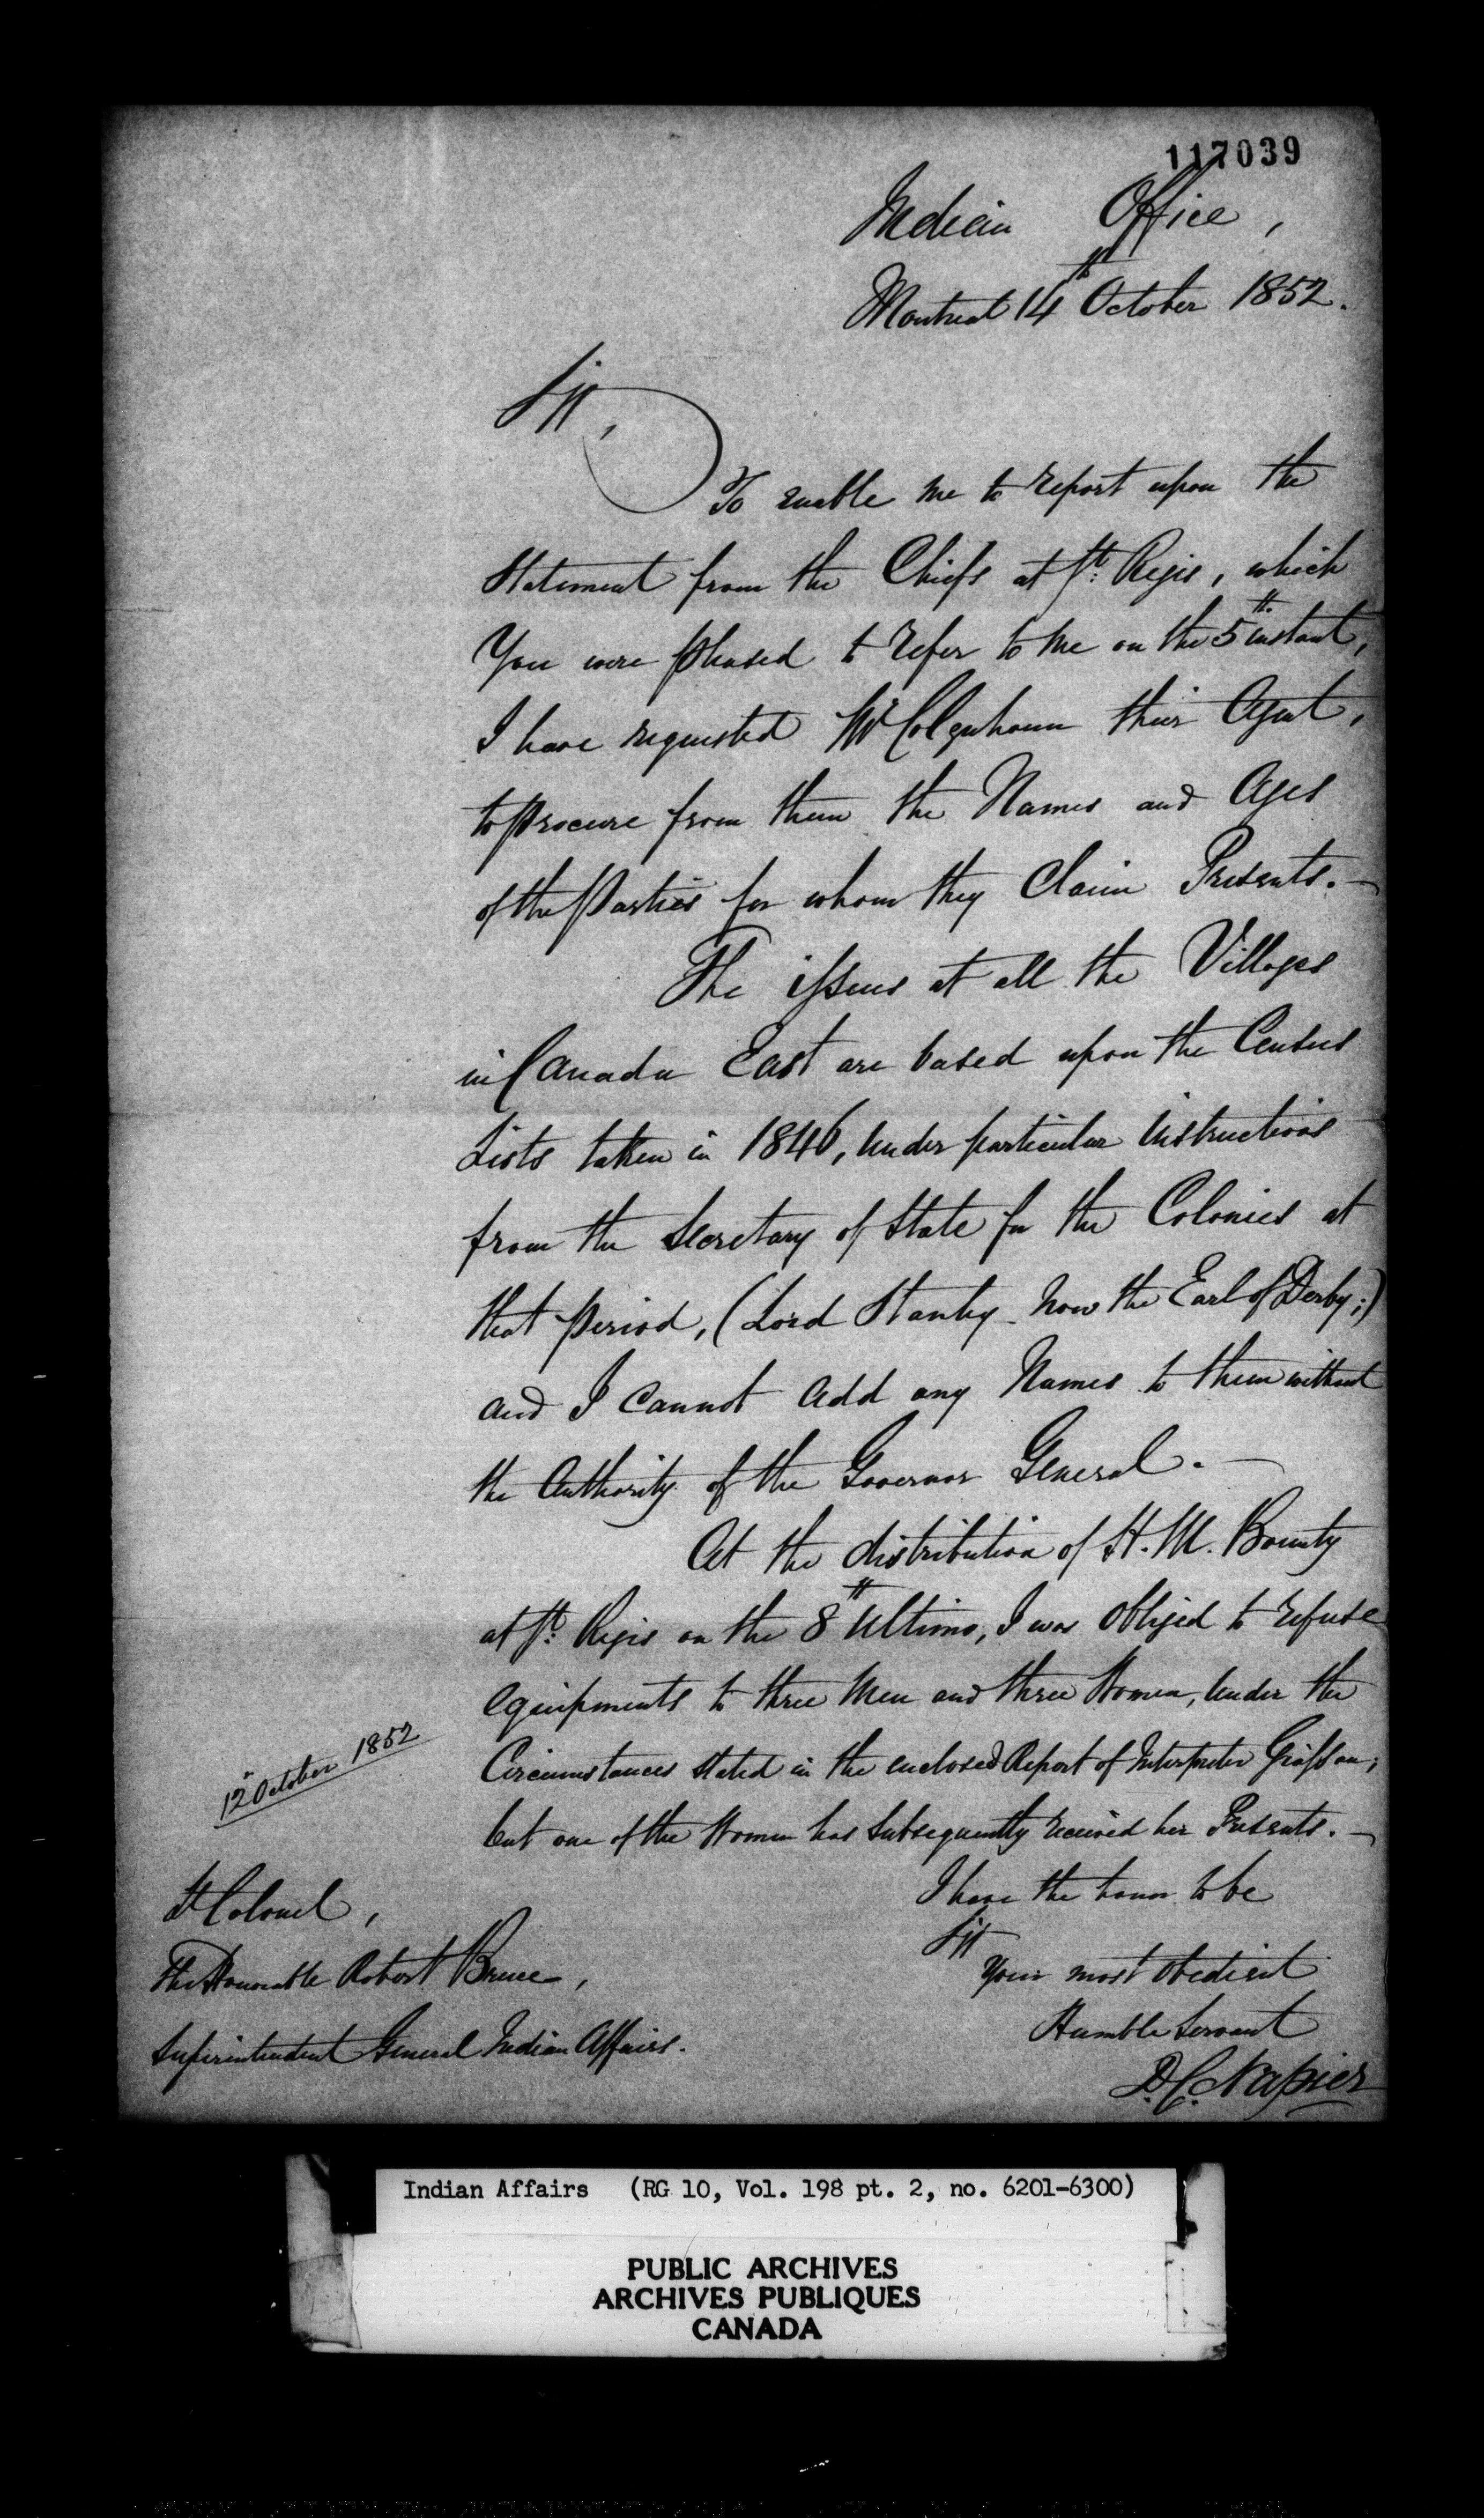 117039
Indian Office,
Montreal 14th October 1852.
Sir,
To enable me to report upon the
Statement from the Chiefs at St: Regis, which
You were pleased to refer to me on the 5th. instant,
I have requested Mr Colquhoun their Agent,
to procure from them the Names and Ages
of the Parties for whom they Claim Presents.—
The issues at all the Villages
in Canada East are based upon the Census
Lists taken in 1846, under particular instructions
from the Secretary of State for the Colonies at
that period, (Lord Stanley now the Earl of Derby;)
and I cannot add any Names to them without
the Authority of the Governor General.—
At the distribution of H. M. Bounty
at St: Regis on the 8th Ultimo, I was obliged to refuse
equipments to three Men and three Women, under the
Circumstances stated in the enclosed Report of Interpreter
12 October 1852
but one of the Women has subsequently received her Presents.—
I have the honor to be
Sir
Your most obedient
Humble Servant
D. C. Napier
Lt Colonel,
The Honorable Robert Bruce,
Superintendent General Indian Affairs.
Indian Affairs (RG 10, Vol. 198 pt. 2, no. 6201-6300)
PUBLIC ARCHIVES
ARCHIVES PUBLIQUES
CANADA